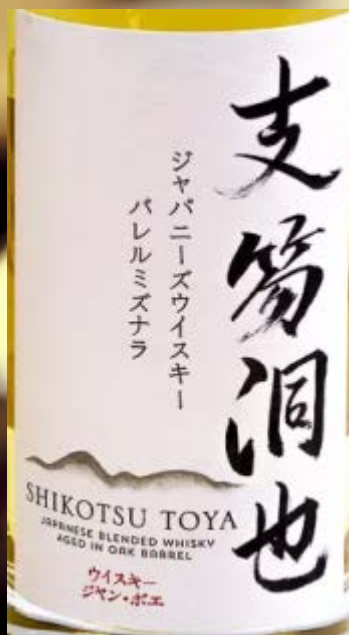 支笏洞也
ジャパニーズウイスキー
バレルミズナラ
SHIKOTSU TOYA
JAPANESE BLENDED WHISKY
AGED IN OAK BARREL
ウイスキー
ジャン・ボエ